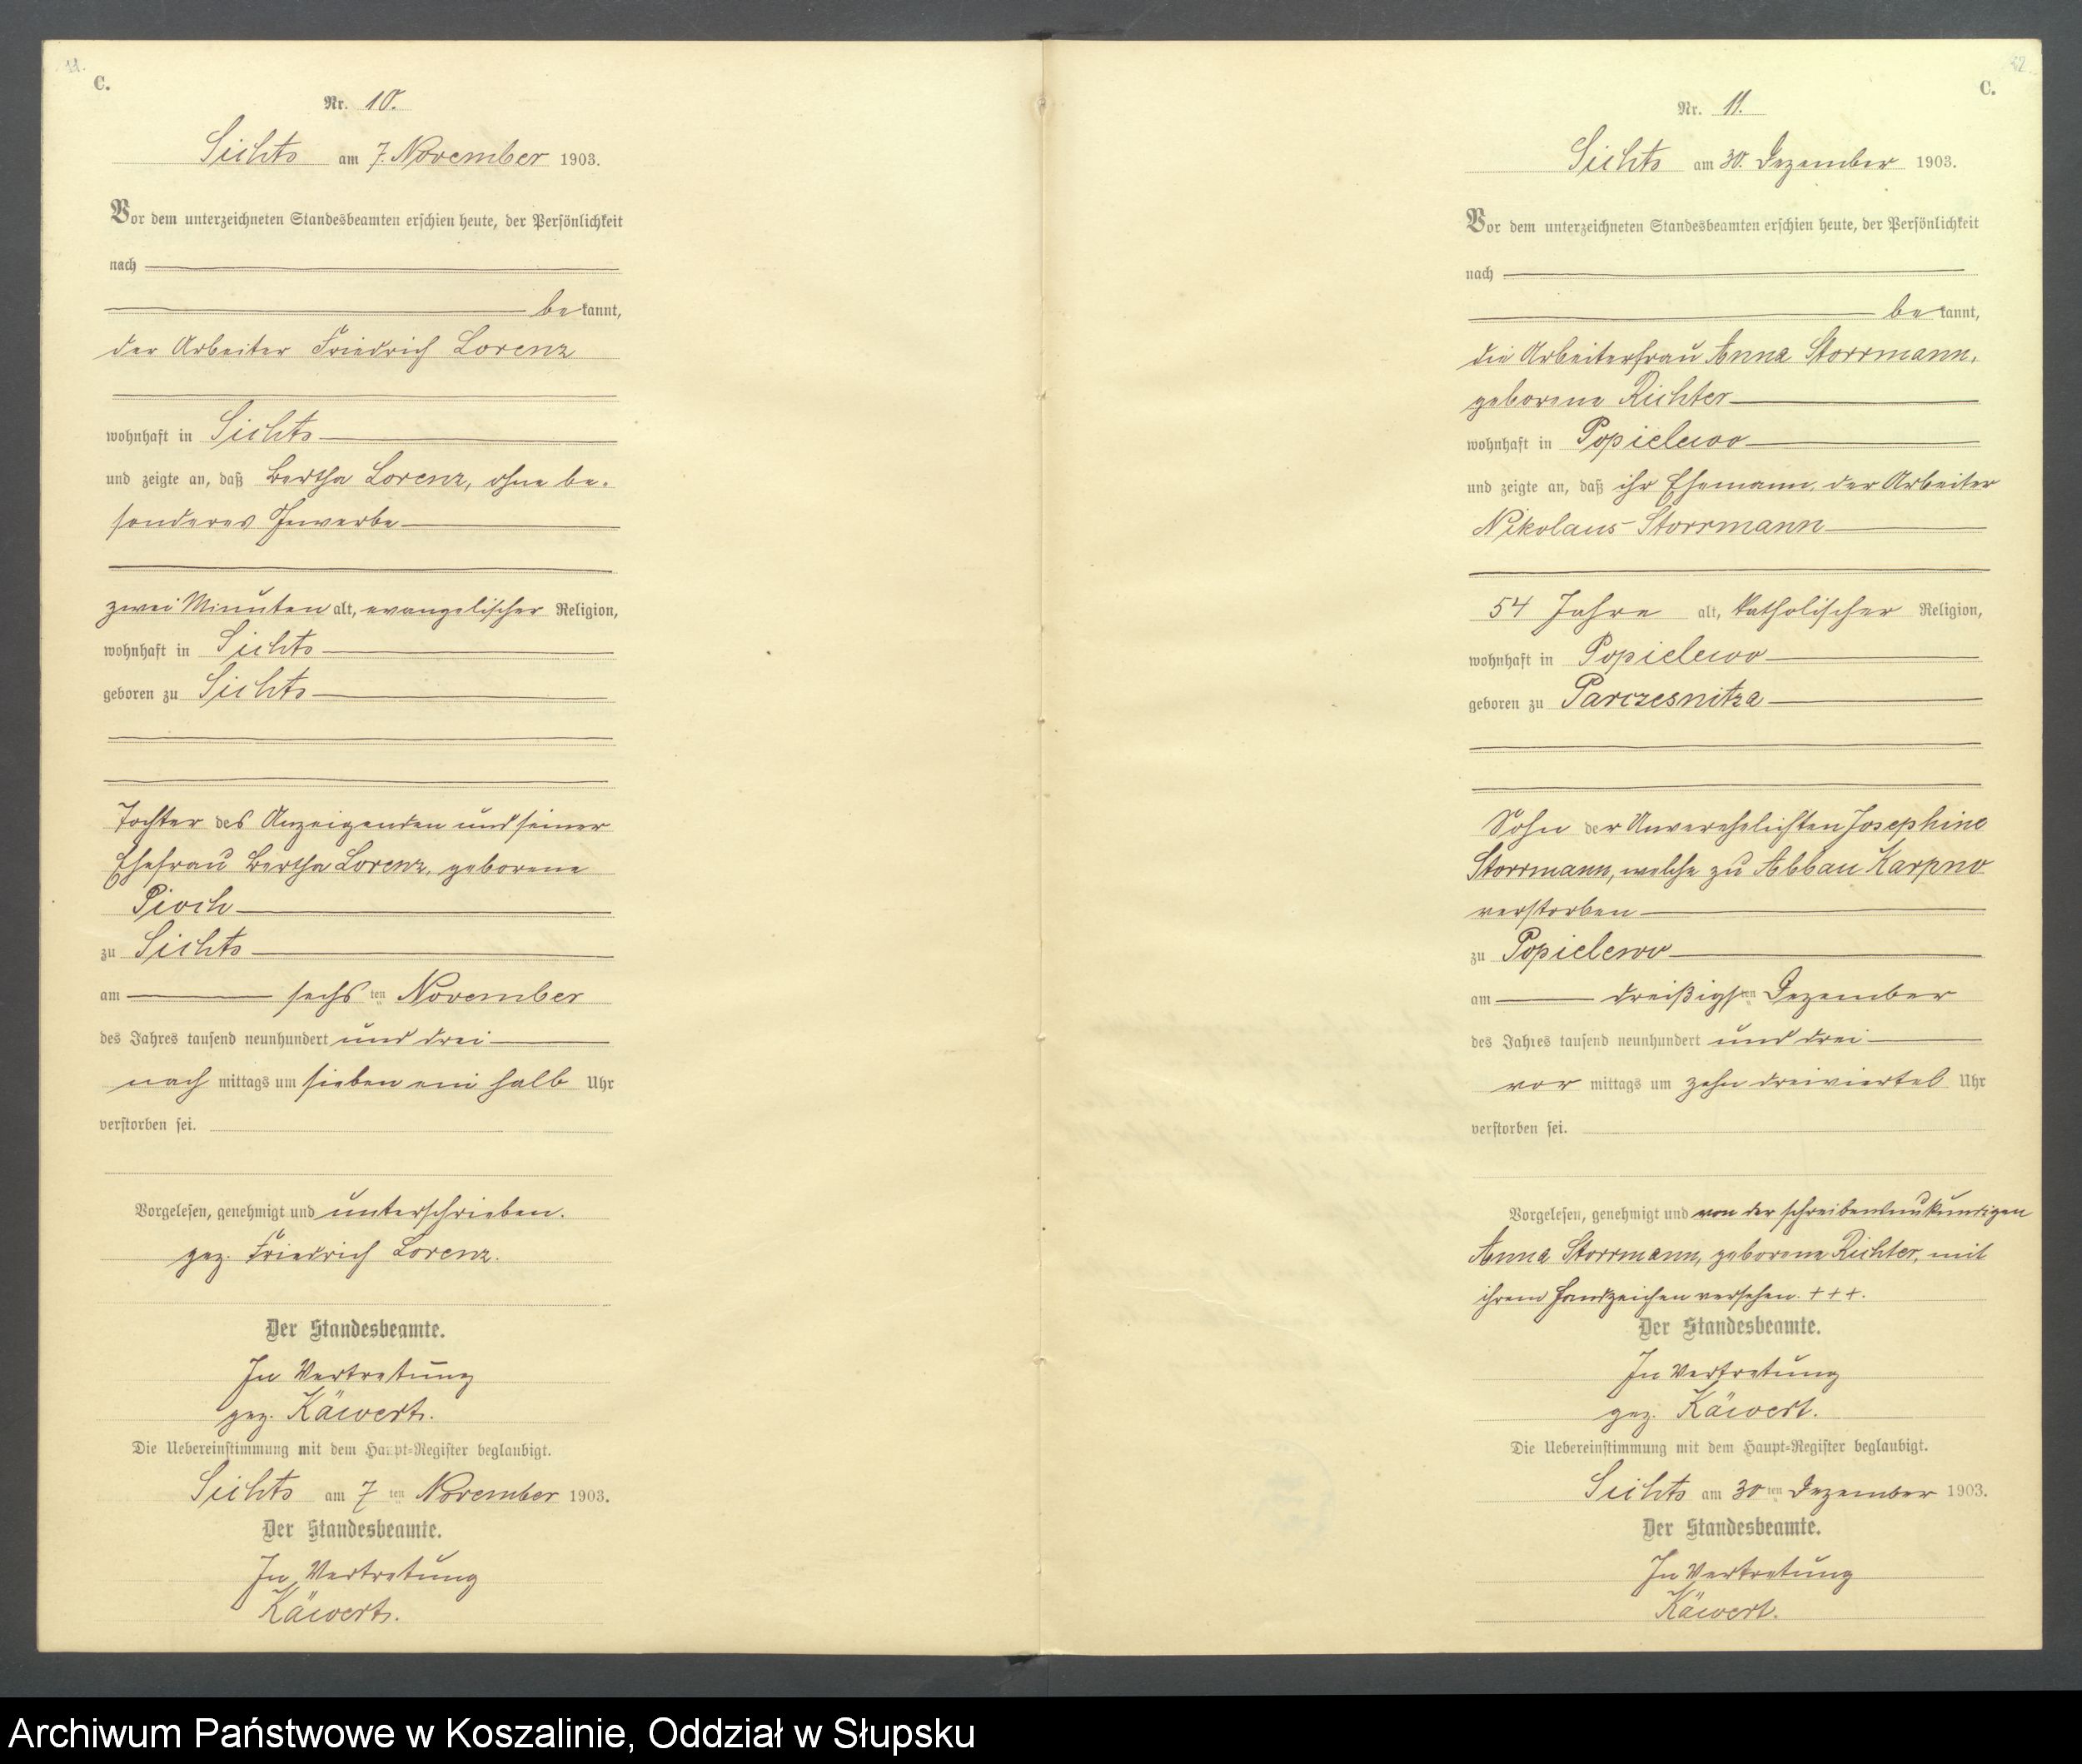 11.
C.
Nr. 10.
Sichts am 7. November 1903.
Vor dem unterzeichneten Standesbeamten erschien heute, der Persönlichkeit
nach
bekannt,
der Arbeiter Friedrich Lorenz
wohnhaft in Sichts
und zeigte an, daß Bertha Lorenz, ohne be-
sonderes Gewerbe
zwei Minuten alt, evangelischer Religion,
wohnhaft in Sichts
geboren zu Sichts
Tochter des Anzeigenden und seiner
Ehefrau Bertha Lorenz, geborene
Pioch
zu Sichts
am sechsten November
des Jahres tausend neunhundert und drei
nach mittags um sieben ein halb Uhr
verstorben sei.
Vorgelesen, genehmigt und unterschrieben.
gez. Friedrich Lorenz.
Der Standesbeamte.
In Vertretung
gez. Käwert.
Die Uebereinstimmung mit dem Haupt-Register beglaubigt.
Sichts am 7ten November 1903.
Der Standesbeamte.
In Vertretung
Käwert.
12.
C.
Nr. 11.
Sichts am 30. Dezember 1903.
Vor dem unterzeichneten Standesbeamten erschien heute, der Persönlichkeit
nach
bekannt,
die Arbeiterfrau Anna Storrmann,
geborene Richter
wohnhaft in Popielewo
und zeigte an, daß ihr Ehemann, der Arbeiter
Nikolaus Storrmann
54 Jahre alt, katholischer Religion,
wohnhaft in Popielewo
geboren zu Parczesnitza
Sohn der Unverehelichten Josephine
Storrmann, welche zu Abbau Karpno
verstorben
zu Popielewo
am dreißigsten Dezember
des Jahres tausend neunhundert und drei
vor mittags um zehn dreiviertel Uhr
verstorben sei.
Vorgelesen, genehmigt und von der schreibensunkundigen
Anna Storrmann, geborene Richter, mit
ihrem Handzeichen versehen. +++.
Der Standesbeamte.
In Vertretung
gez. Käwert.
Die Uebereinstimmung mit dem Haupt-Register beglaubigt.
Sichts am 30ten Dezember 1903.
Der Standesbeamte.
In Vertretung
Käwert.
Archiwum Państwowe w Koszalinie, Oddział w Słupsku